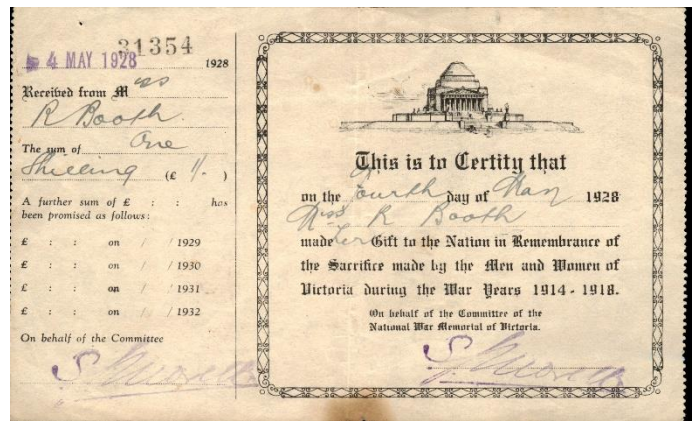 31354
4 MAY 1928 1928
Received from Miss
R Booth
The sum of One
Shilling (£ 1/- )
A further sum of £ : : has
been promised as follows:
£ : : on / / 1929
£ : : on / / 1930
£ : : on / / 1931
£ : : on / / 1932
On behalf of the Committee
This is to Certify that
on the Fourth day of May 1928
Miss R Booth
made her Gift to the Nation in Remembrance of
the Sacrifice made by the Men and Women of
Victoria during the War Years 1914 - 1918.
On behalf of the Committee of the
National War Memorial of Victoria.